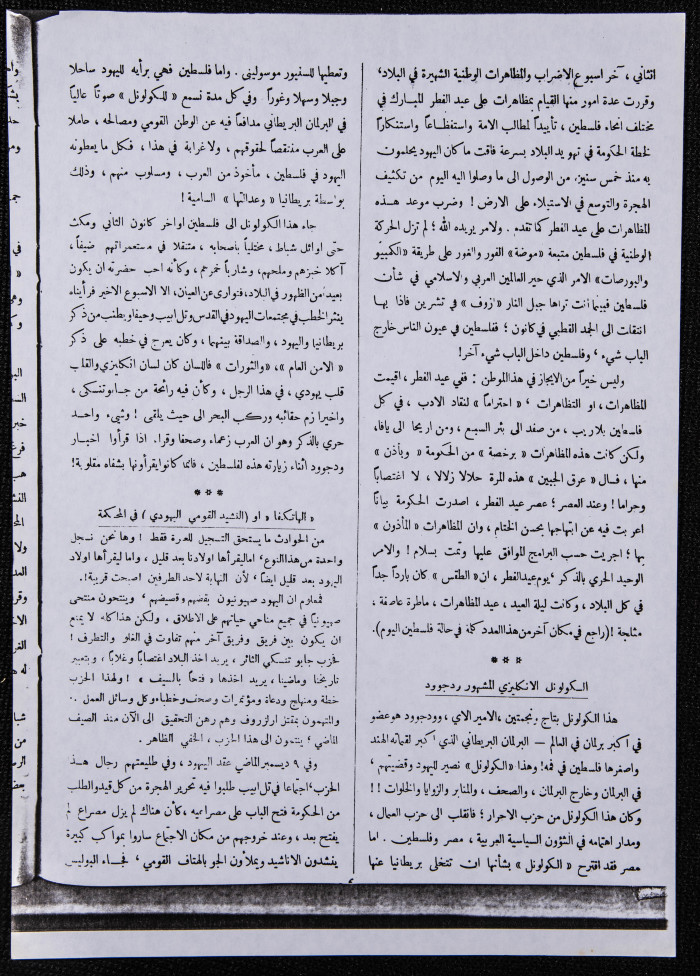 الثاني ، آخر اسبوع الاضراب والمظاهرات الوطنية الشهيرة في البلاد،
وقررت عدة امور منها القيام بمظاهرات على عيد الفطر المبارك في
مختلف انحاء فلسطين ، تأييداً لمطالب الامة واستفظاعاً واستنكاراً
لخطة الحكومة في تهويد البلاد بسرعة فاقت ما كان اليهود يحلمون
به منذ خمس سنين، من الوصول الى ما وصلوا اليه اليوم من تكثيف
الهجرة والتوسع في الاستيلاء على الارض ! وضرب موعد هذه
المظاهرات على عيد الفطر كما تقدم . ولامر يريده الله ؛ لم تزل الحركة
الوطنية في فلسطين متبعة «موضة» الفور والغور على طريقة «الكمبيو
والبورصات» الامر الذي حير العالمين العربي والاسلامي في شأن
فلسطين فبينما انت تراها جبل النار «تزوف» في تشرين فاذا بها
انتقلت الى الجمد القطبي في كانون ؛ ففلسطين في عيون الناس خارج
الباب شيء ، وفلسطين داخل الباب شيء آخر!
وليس خيراً من الايجاز في هذا الموطن : ففي عيد الفطر ، اقيمت
المظاهرات ، او التظاهرات ، «احتراماً» لنقاد الادب ، في كل
فلسطين بلا ريب ، من صفد الى بئر السبع ، ومن اريحا الى يافا،
ولكن كانت هذه المظاهرات «برخصة» من الحكومة «وباذن»
منها ، فسال «عرق الجبين» هذه المرة حلالا زلالا ، لا اغتصاباً
وحراما ! وعند العصر ؛ عصر عيد الفطر ، اصدرت الحكومة بياناً
اعربت فيه عن ابتهاجها بحسن الختام ، وان المظاهرات «المأذون»
بها ؛ اجريت حسب البرامج الموافق عليها وتمت بسلام ! والامر
الوحيد الحري بالذكر ، يوم عيد الفطر ، ان «الطقس» كان بارداً جداً
في كل البلاد ، وكانت ليلة العيد ، عيد المظاهرات ، ماطرة عاصفة ،
مثلجة ! (راجع في مكان آخر من هذا العدد كلمة في حالة فلسطين اليوم).
* * *
الكولونل الانكليزي المشهور ردجوود
هذا الكولونل بتاج وبنجمتين ، الامير الاي ، وودجوود هو عضو
في اكبر برلمان في العالم — البرلمان البريطاني الذي اكبر لقماته الهند
واصغرها فلسطين في فمه! وهذا «الكولونل» نصير لليهود وقضيتهم ،
في البرلمان وخارج البرلمان ، والصحف ، والمنابر والزوايا والخلوات !!
وكان هذا الكولونل من حزب الاحرار ؛ فانقلب الى حزب العمال ،
ومدار اهتمامه في الشؤون السياسية العربية ، مصر وفلسطين . اما
مصر فقد اقترح «الكولونل» بشأنها ان تتخلى بريطانيا عنها
وتعطيها للسنيور موسوليني . واما فلسطين فهي برأيه لليهود ساحلا
وجبلا وسهلا وغوراً وفي كل مدة نسمع «للكولونل» صوتاً عالياً
في البرلمان البريطاني مدافعاً فيه عن الوطن القومي ومصالحه ، حاملا
على العرب منتقصاً لحقوقهم ، ولا غرابة في هذا ، فكل ما يعطونه
اليهود في فلسطين ، مأخوذ من العرب ، ومسلوب منهم ، وذلك
بواسطة بريطانيا «وعدالتها» السامية !
جاء هذا الكولونل الى فلسطين اواخر كانون الثاني ومكث
حتى اوائل شباط ، مختلياً باصحابه ، متنقلا في مستعمراتهم ضيفاً،
آكلا خبزهم وملحهم، وشارباً خمرهم ، وكأنه احب حضرته ان يكون
بعيداً من الظهور في البلاد، فتوارى عن العيان، الا الاسبوع الاخير فرأيناه
ينثر الخطب في مجتمعات اليهود في القدس وتل ابيب وحيفا ويطنب من ذكر
بريطانيا واليهود ، والصداقة بينهما ، وكان يعرج في خطبه على ذكر
«الامن العام»، «والثورات» فاللسان كان لسان انكليزي والقلب
قلب يهودي ، في هذا الرجل ، وكأن فيه رائحة من جابوتنسكي ،
واخيرا زم حقائبه وركب البحر الى حيث يلقى ! وشيء واحد
حري بالذكر وهو ان العرب زعماء وصحفا وقراء اذا قرأوا اخبار
ودجوود اثناء زيارته هذه لفلسطين ، فانما كانوا يقرأونها بشفاه مقلوبة!
* * *
«الهاتكفا» او (النشيد القومي اليهودي) في المحكمة
من الحوادث ما يستحق التسجيل للعبرة فقط ! وها نحن نسجل
واحدة من هذا النوع، اما ليقرأها اولادنا بعد قليل ، واما ليقرأها اولاد
اليهود بعد قليل ايضاً ، لأن النهاية لاحد الطرفين اصبحت قريبة!.
فمعلوم ان اليهود صهيونيون بقضهم وقضيضهم ، وينتحون منتحى
صهيونياً في جميع مناحي حياتهم على الاطلاق ، ولكن هذا كله لا يمنع
ان يكون بين فريق وفريق آخر منهم تفاوت في الغلو والتطرف !
فحزب جابوتنسكي الثائر ، يريد اخذ البلاد اغتصاباً وغلاباً ، وبتعبير
تاريخنا وماضينا ، يريد اخذها «فتحاً بالسيف» ! ولهذا الحزب
خطة ومنهاج ودعاة ومؤتمرات وصحف وخطباء وكل وسائل العمل ..
والمتهمون بمقتل ارلوزروف وهم رهن التحقيق الى الآن منذ الصيف
الماضي ، ينتمون الى هذا الحزب ، الخفي الظاهر .
وفي ٩ ديسمبر الماضي عقد اليهود ، وفي طليعتهم رجال هذا
الحزب، اجتماعا في تل ابيب طلبوا فيه تحرير الهجرة من كل قيد والطلب
من الحكومة فتح الباب على مصراعيه ، كأن هناك لم يزل مصراع لم
يفتح بعد ، وعند خروجهم من مكان الاجتماع ساروا بمواكب كبيرة
ينشدون الاناشيد ويملأون الجو بالهتاف القومي ، فجاء البوليس